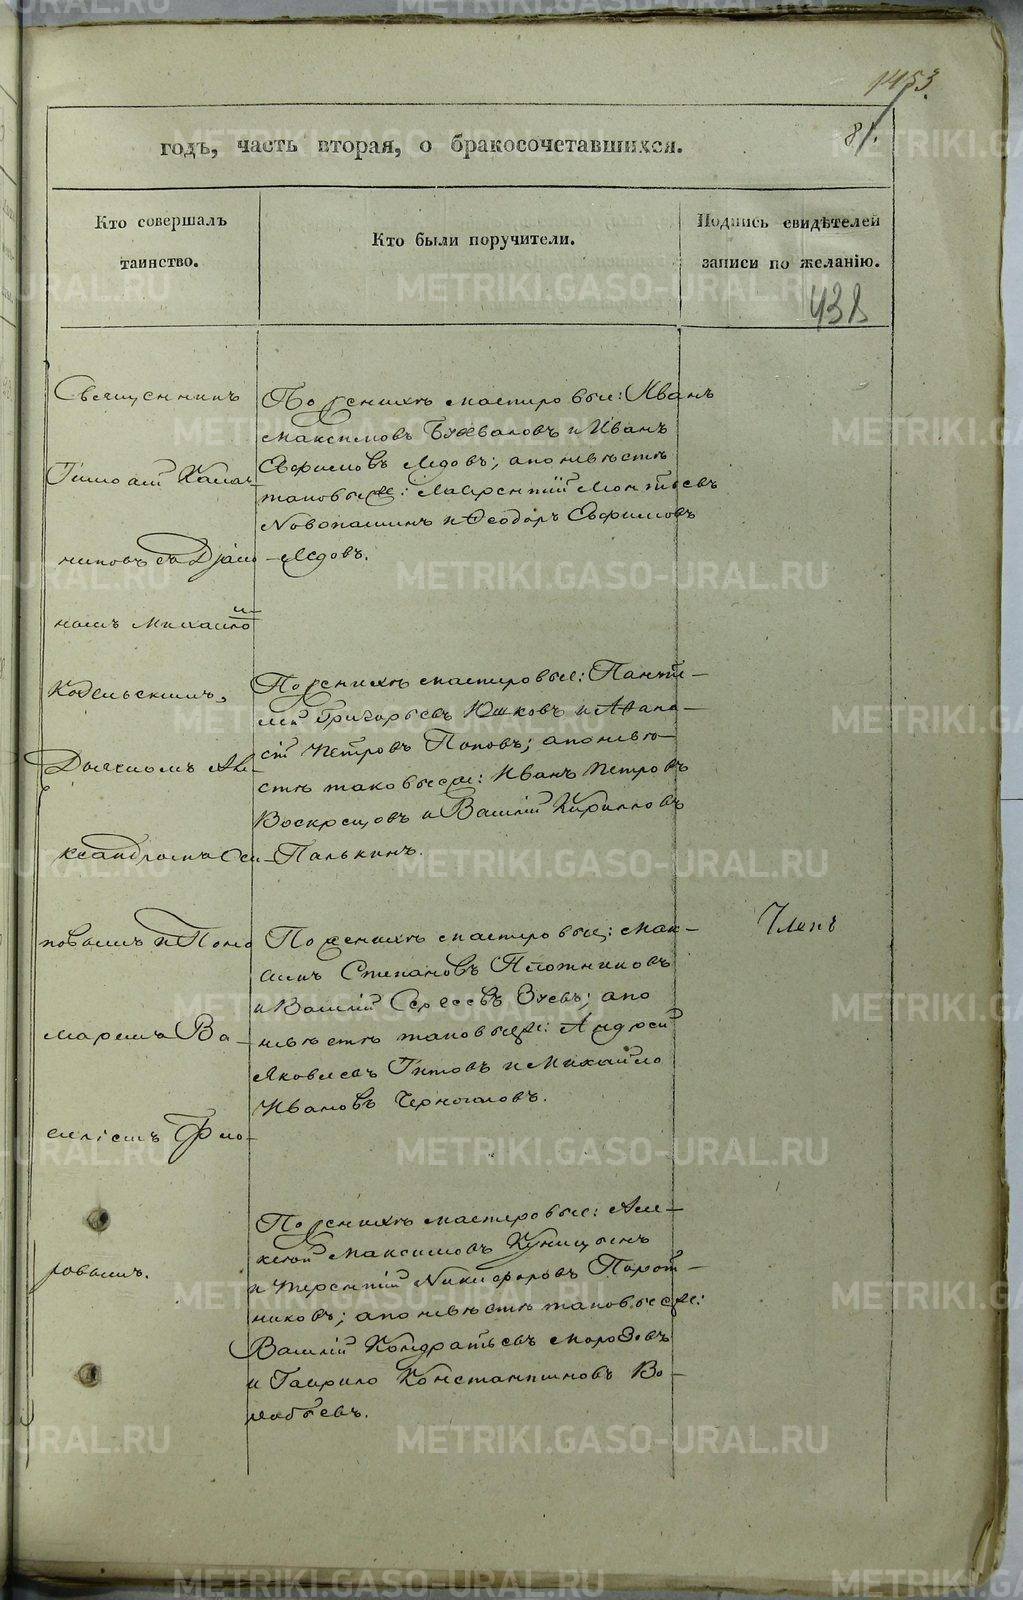 1453.
81.
годъ, часть вторая, о бракосочетавшихся.
Кто совершалъ
таинство.
Кто были поручители.
Подпись свидѣтелей
записи по желанію.
438
Священникъ
Тимоѳей
никовъ съ Діако
номъ Михаило
Дьячкомъ Але-
ксандромъ Оси-
повымъ и Поно
маремъ Ва-
силіемъ Фло-
ровымъ.
По женихѣ мастеровые: Иванъ
Максимовъ и Иванъ
Евфимовъ Ледовъ; а по невѣстѣ
таковые же: Лаврентій
Новопашинъ и Ѳеодоръ Евфимовъ
Ледовъ.
По женихѣ мастеровые: Панте-
лей Григорьевъ Юшковъ и Аѳана-
сій Петровъ Поповъ; а по невѣ-
стѣ таковые же: Иванъ Петровъ
Воскрецовъ и Василій Кириловъ
Палькинъ.
По женихѣ мастеровые: Мак-
симъ Степановъ Плотниковъ
и Василій Сергеевъ Зуевъ; а по
невѣстѣ таковые же: Андрей
Яковлевъ Титовъ и Михайло
Ивановъ Черноголовъ.
По женихѣ мастеровые: Але-
ксей Максимовъ Куницынъ
и Терентій Никифоровъ
никовъ; а по невѣстѣ таковые же:
Василій Кондратьевъ Морозовъ
и Гаврило Константиновъ Во-
робьевъ.
Членъ
METRIKI.GASO-URAL.RU